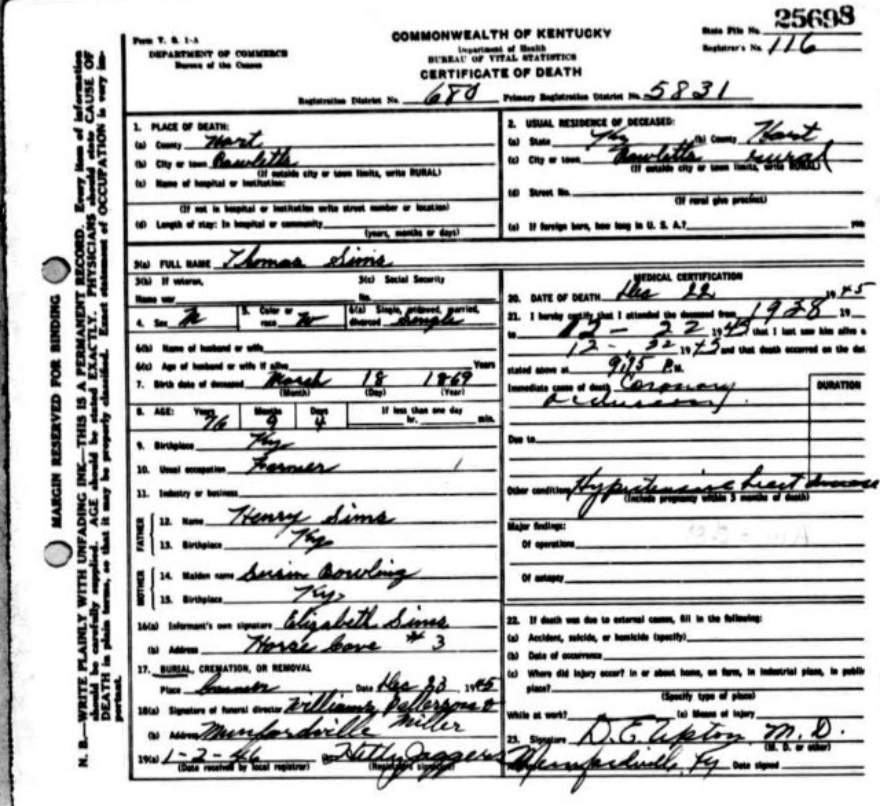 25698
Form V. S. 1-A
COMMONWEALTH OF KENTUCKY
State File No.
DEPARTMENT OF COMMERCE
Department of Health
Registrar's No. 116
Bureau of the Census
BUREAU OF VITAL STATISTICS
CERTIFICATE OF DEATH
Registration District No. 680 Primary Registration District No. 5831
N. B.—WRITE PLAINLY WITH UNFADING INK—THIS IS A PERMANENT RECORD. Every item of information
should be carefully supplied. AGE should be stated EXACTLY. PHYSICIANS should state CAUSE OF
DEATH in plain terms, so that it may be properly classified. Exact statement of OCCUPATION is very im-
portant.
MARGIN RESERVED FOR BINDING
1. PLACE OF DEATH:
(a) County Hart
(b) City or town Rowletts
(If outside city or town limits, write RURAL)
(c) Name of hospital or institution:
(If not in hospital or institution write street number or location)
(d) Length of stay: In hospital or community
(years, months or days)
2. USUAL RESIDENCE OF DECEASED:
(a) State Ky (b) County Hart
(c) City or town Rowletts rural
(If outside city or town limits, write RURAL)
(d) Street No.
(If rural give precinct)
(e) If foreign born, how long in U. S. A.?
3(a) FULL NAME Thomas Sims
3(b) If veteran, 3(c) Social Security
Name war No.
4. Sex M 5. Color or race W 6(a) Single, widowed, married, divorced Single
6(b) Name of husband or wife
6(c) Age of husband or wife if alive Years
7. Birth date of deceased March 18 1869
(Month) (Day) (Year)
8. AGE: Years Months Days If less than one day
76 9 4 hr. min.
9. Birthplace Ky
10. Usual occupation Farmer
11. Industry or business
FATHER
12. Name Henry Sims
13. Birthplace Ky
MOTHER
14. Maiden name Susin Bowling
15. Birthplace Ky.
16(a) Informant's own signature Elizabeth Sims
(b) Address Horse Cave # 3
17. BURIAL, CREMATION, OR REMOVAL
Place Date Dec 23, 1945
18(a) Signature of funeral director Williams Patterson &
(b) Address Munfordville Miller
19(a) 1-2-46 Hetty Jaggers
(Date received by local registrar) (Registrar's signature)
MEDICAL CERTIFICATION
20. DATE OF DEATH Dec 22 1945
21. I hereby certify that I attended the deceased from 1938 19
to 12-22 1945 that I last saw him alive o
12-22 1945 and that death occurred on the dat
stated above at 9:15 P.M.
Immediate cause of death Coronary DURATION
occlusion
Due to
Other conditions Hypertensive heart disease
(Include pregnancy within 3 months of death)
Major findings:
Of operations
Of autopsy
22. If death was due to external causes, fill in the following:
(a) Accident, suicide, or homicide (specify)
(b) Date of occurrence
(c) Where did injury occur? In or about home, on farm, in industrial place, in public
place?
(Specify type of place)
While at work? (e) Means of injury
23. Signature D. E. Upton M. D.
(M. D. or other)
Munfordville, Ky Date signed